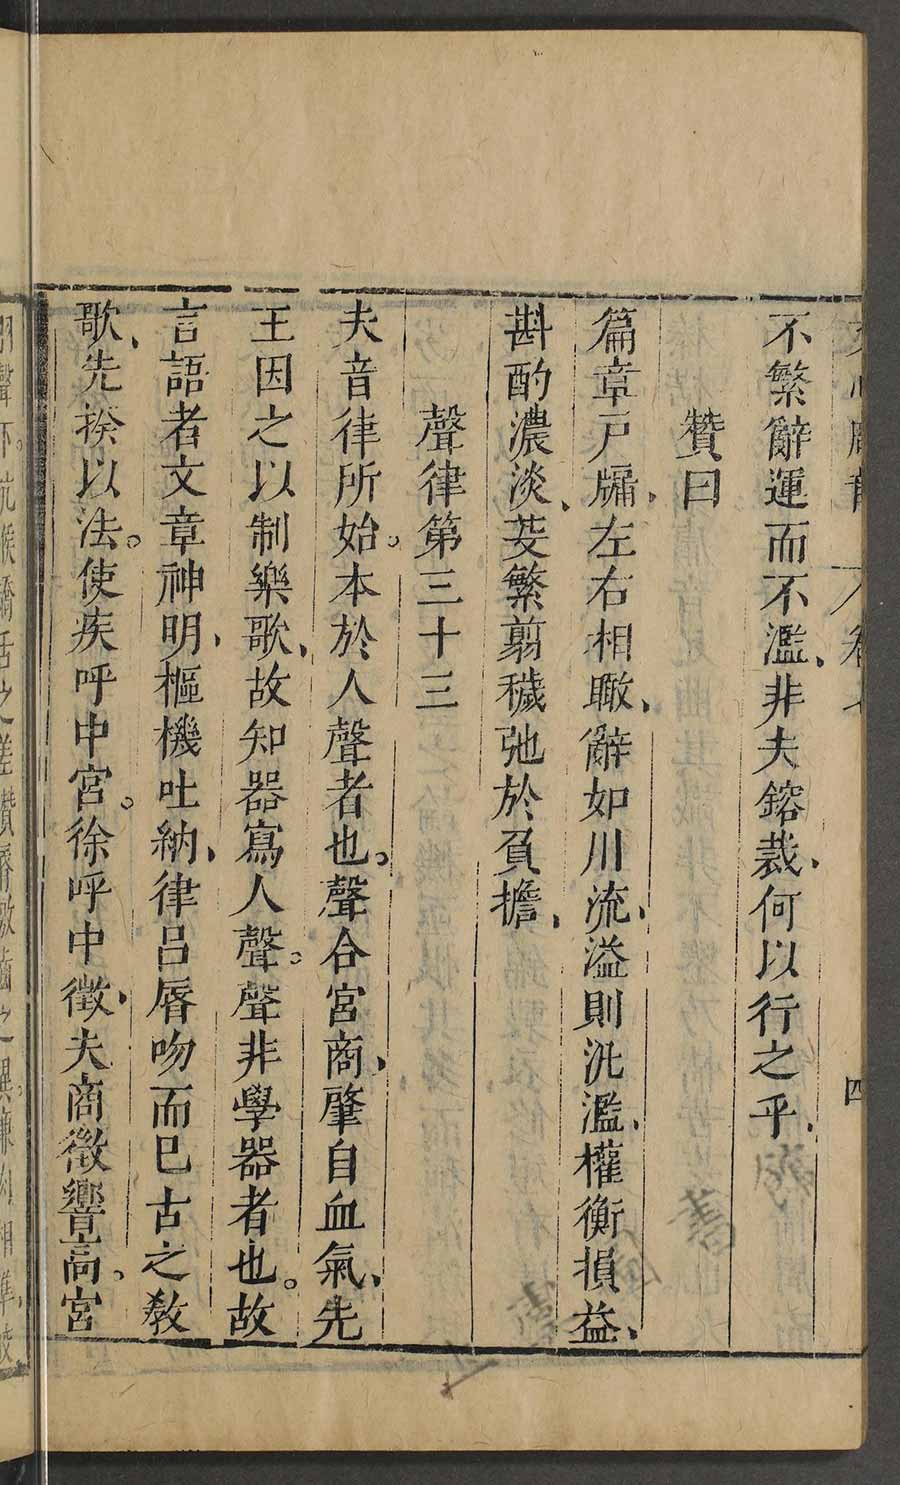 不繁辭運而不濫、非夫鎔裁、何以行之乎、
贊曰
篇章戶牖、左右相瞰、辭如川流、溢則汎濫、權衡損益、
斟酌濃淡、芟繁翦穢弛於負擔、
聲律第三十三
夫音律所始。本於人聲者也。聲合宮商、肇自血氣、先
王因之以制樂歌、故知器寫人聲。聲非學器者也。故
言語者文章神明、樞機吐納、律呂脣吻而已古之敎
歌、先揆以法。使疾呼中宮。徐呼中徵、夫商徵響高、宮